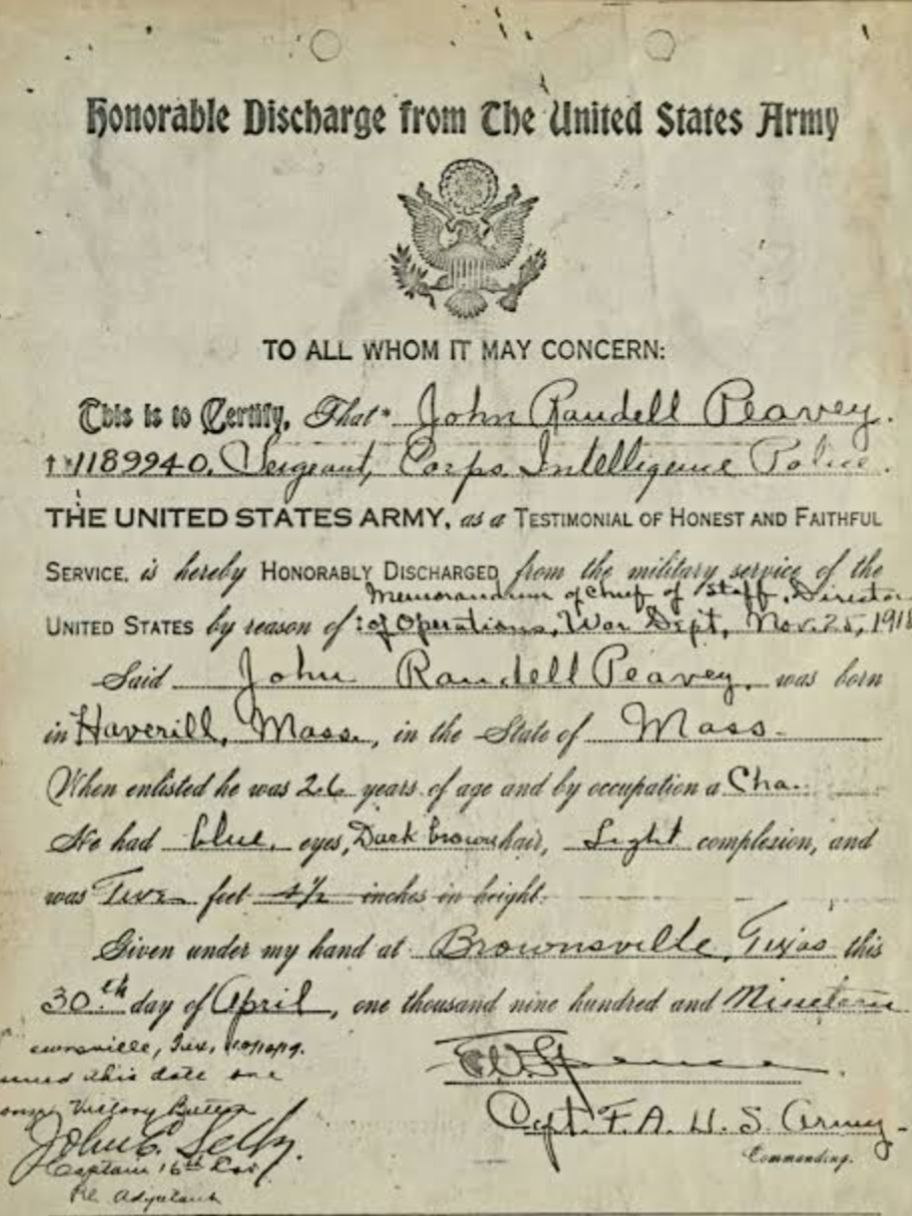 Honorable Discharge from The United States Army
TO ALL WHOM IT MAY CONCERN:
This is to Certify, That John Randell Peavey.
1189940. Sergeant, Corps Intelligence Police.
THE UNITED STATES ARMY, as a TESTIMONIAL OF HONEST AND FAITHFUL
SERVICE, is hereby HONORABLY DISCHARGED from the military service of the
Memorandum of Chief of Staff, Director
UNITED STATES by reason of : of Operations, War Dept, Nov. 25, 1918
Said John Randell Peavey, was born
in Haverill, Mass., in the State of Mass.
When enlisted he was 26 years of age and by occupation a Cha.
He had blue eyes, Dark brown hair, Light complexion, and
was Five feet 4½ inches in height.
Given under my hand at Brownsville, Texas this
30th day of April, one thousand nine hundred and Nineteen
ownsville, Tex,
this date one
Victory Button
E.W. Spence
John C. Selby.
Capt. F.A. U.S. Army
Captain 16th Cav
Commanding.
Adjutant